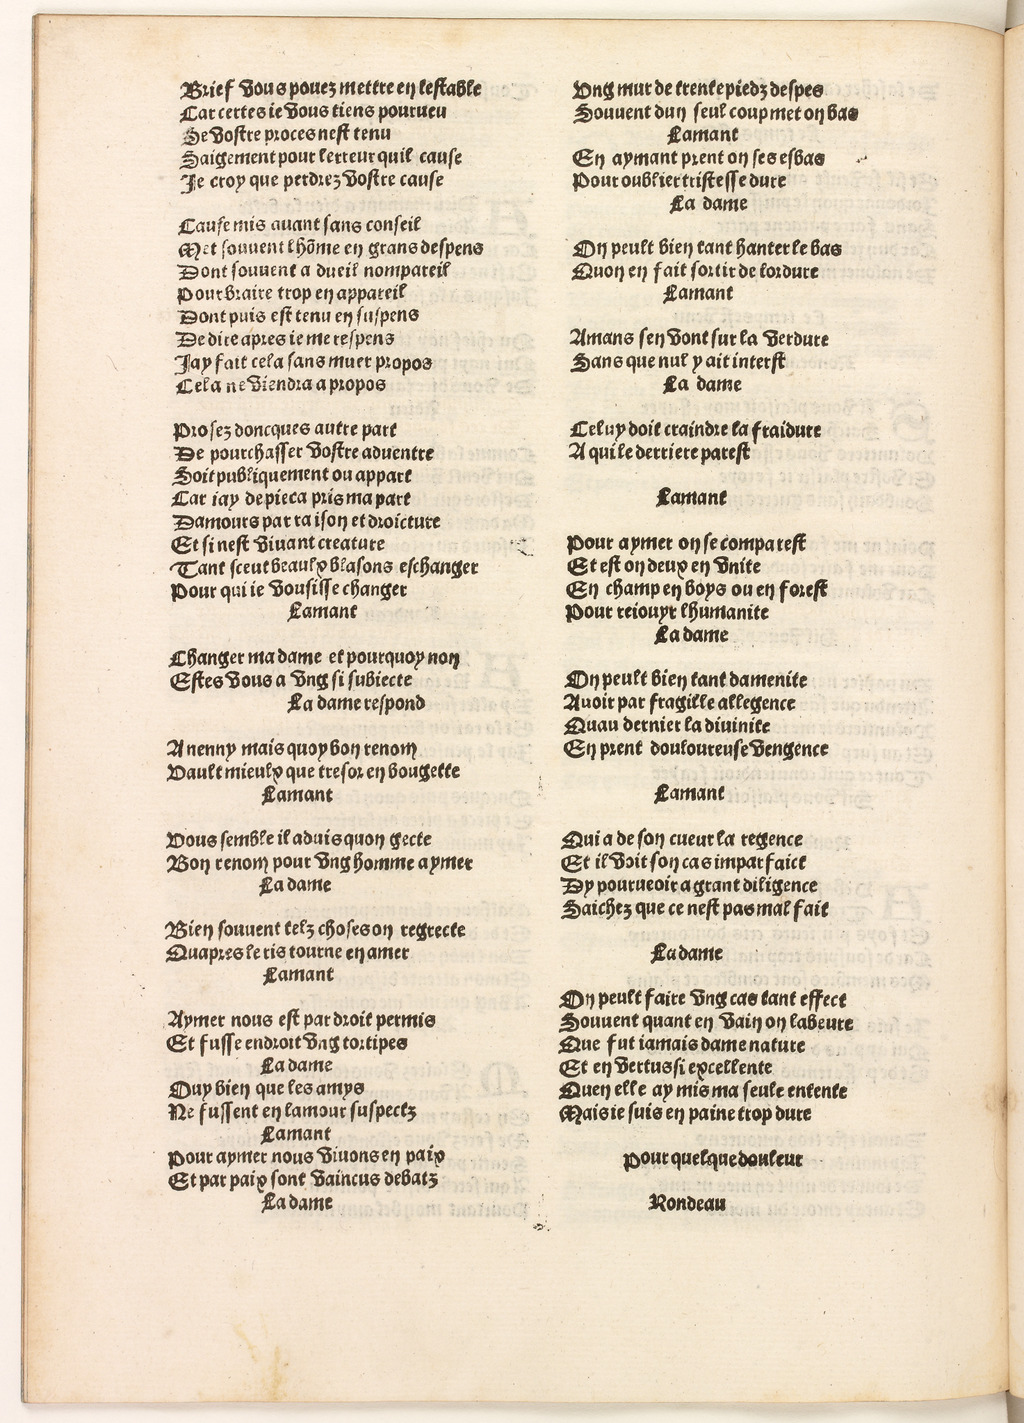 Brief vous pouez mettre en lestable
Car certes ie vous tiens pourueu
Se vostre proces nest tenu
Saigement pour lerreur quil cause
Je croy que perdrez vostre cause
Cause mis auant sans conseil
Met souuent lhõme en grans despens
Dont souuent a dueil nompareil
Pour braire trop en appareil
Dont puis est tenu en suspens
De dire apres ie me respens
Jay fait cela sans muer propos
Cela ne viendra a propos
Prosez doncques autre part
De pourchasser vostre aduentre
Soit publiquement ou appart
Car iay de pieca pris ma part
Damours par raison et droicture
Et si nest viuant creature
Tant sceut beaulx blasons eschanger
Pour qui ie vousisse changer
Lamant
Changer ma dame et pourquoy non
Estes vous a vng si subiecte
La dame respond
Anenny mais quoy bon renom
Vault mieulx que tresor en bougette
Lamant
Vous semble il aduis quon gecte
Bon renom pour vng homme aymer
La dame
Bien souuent telz choses on regrecte
Quapres le ris tourne en amer
Lamant
Aymer nous est par droit permis
Et fusse endroit vng tortipes
La dame
Ouy bien que les amys
Ne fussent en lamour suspectz
Lamant
Pour aymer nous viuons en paix
Et par paix sont vaincus debatz
La dame
Vng mur de trente piedz despes
Souuent dun seul coup met on bas
Lamant
En aymant prent on ses esbas
Pour oublier tristesse dure
La dame
On peult bien tant hanter le bas
Quon en fait sortir de lordure
Lamant
Amans sen vont sur la verdure
Sans que nul y ait interst
La dame
Celuy doit craindre la fraidure
A qui le derriere parest
Lamant
Pour aymer on se comparest
Et est on deux en vnite
En champ en boys ou en forest
Pour reiouyr lhumanite
La dame
On peult bien tant damenite
Auoir par fragille allegence
Quau dernier la diuinite
En prent douloureuse vengence
Lamant
Qui a de son cueur la regence
Et il voit son cas imparfaict
Dy pourueoir a grant diligence
Saichez que ce nest pas mal fait
La dame
On peult faire vng cas tant effect
Souuent quant en vain on labeure
Que fut iamais dame nature
Et en vertus si excellente
Quen elle ay mis ma seule entente
Mais ie suis en paine trop dure
Pour quelque douleur
Rondeau